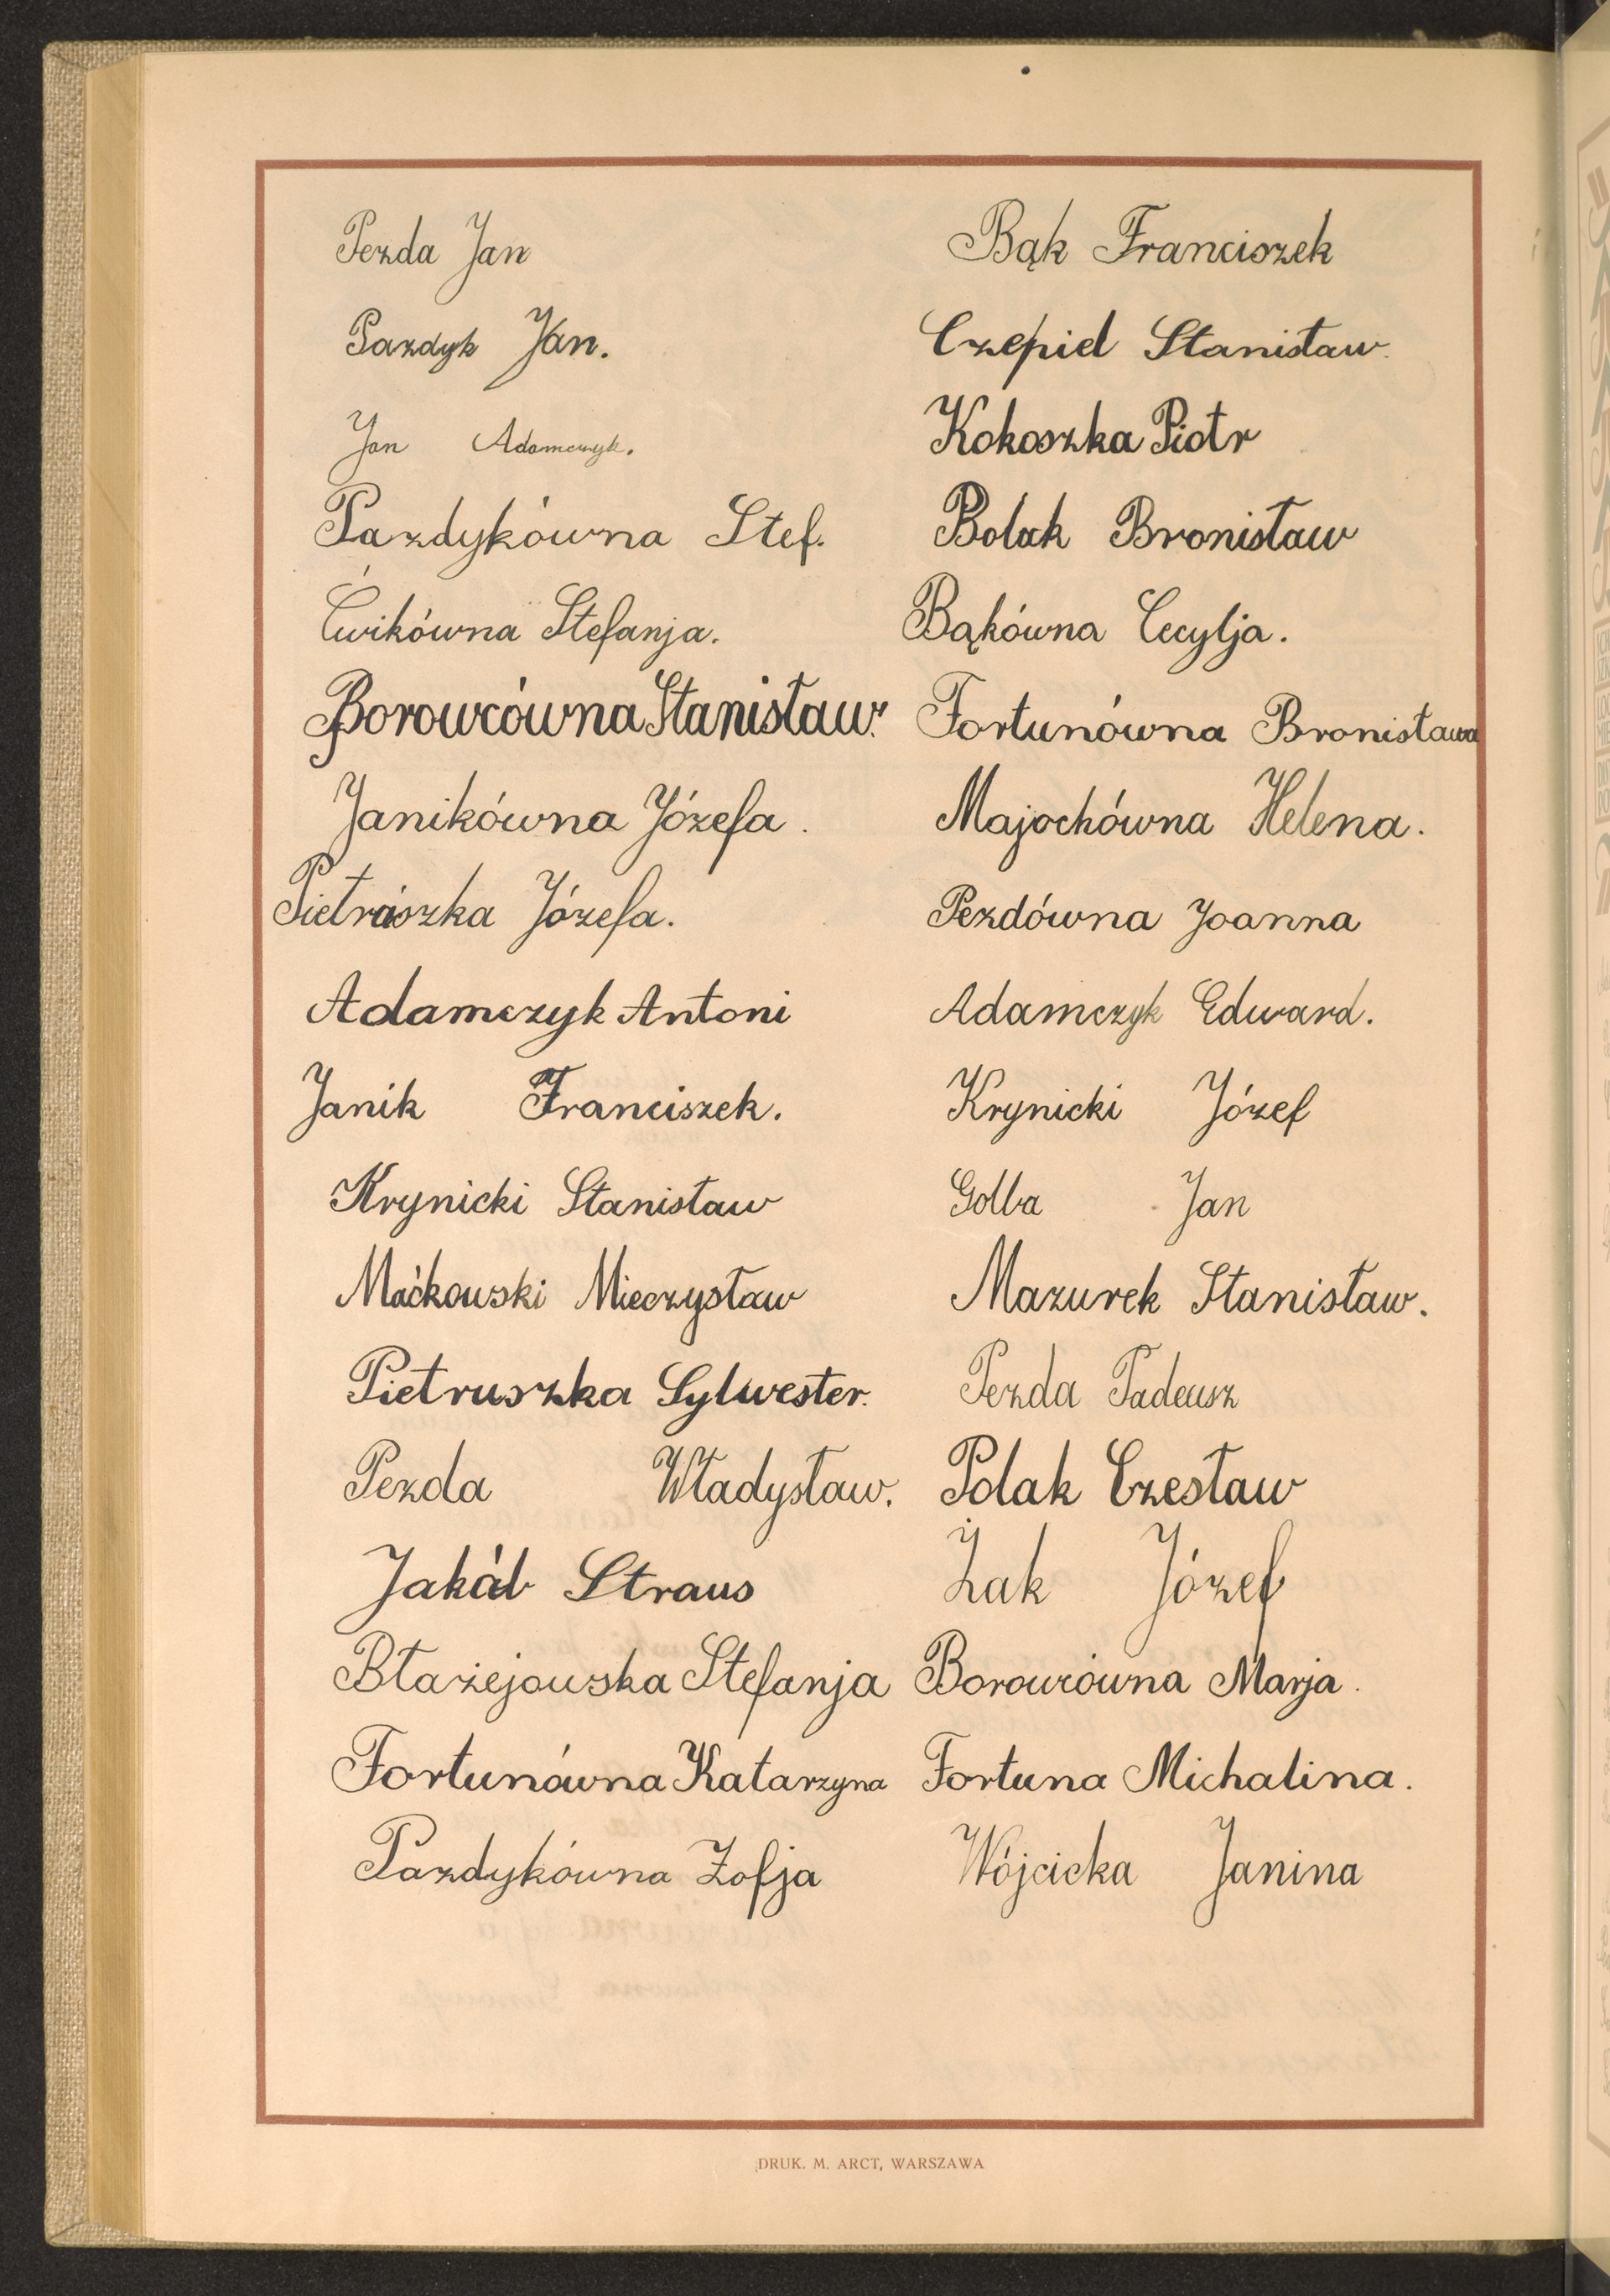 Pezda Jan
Pazdyk Jan.
Jan Adamczyk.
Pazdykówna Stef.
Ćwikówna Stefanja.
Borowcówna Stanisław.
Janikówna Józefa.
Pietraszka Józefa.
Adamczyk Antoni
Janik Franciszek.
Krynicki Stanisław
Maćkowski Mieczysław
Pietruszka Sylwester.
Pezda Władysław.
Jakób Straus
Błażejowska Stefanja
Fortunówna Katarzyna
Pazdykówna Zofja
Bąk Franciszek
Czepiel Stanisław.
Kokoszka Piotr
Bolak Bronisław
Bąkówna Cecylja.
Fortunówna Bronisława
Majochówna Helena.
Pezdówna Joanna
Adamczyk Edward.
Krynicki Józef
Golba Jan
Mazurek Stanisław.
Pezda Tadeusz
Polak Czesław
Żak Józef
Borowcówna Marja.
Fortuna Michalina.
Wójcicka Janina
DRUK. M. ARCT, WARSZAWA